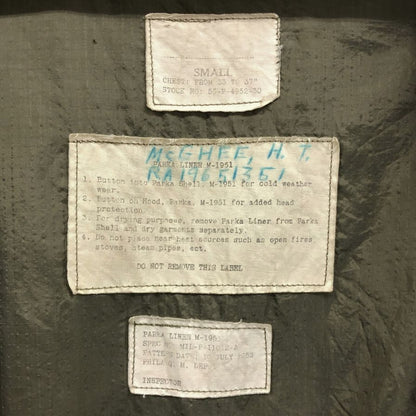 SMALL
CHEST: FROM 33 TO 37"
STOCK NO: 55-P-4952-30
McGHEE, H. T.
PARKA LINER M-1951
RA19651351
1. Button into Parka Shell, M-1951 for cold weather
wear.
2. Button on Hood, Parka, M-1951 for added head
protection.
3. For drying purposes, remove Parka Liner from Parka
Shell and dry garments separately.
4. Do not place near heat sources such as open fires
stoves, steam pipes, ect.
DO NOT REMOVE THIS LABEL
PARKA LINER M-195
SPEC MIL-P-11012-A
PATTERN DATE: 10 JULY 1952
PHILA Q. M. DEP
INSPECTOR